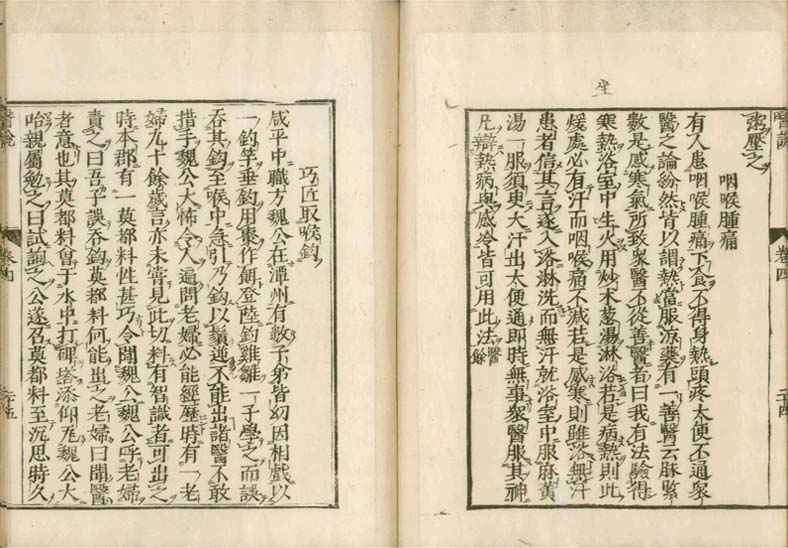 坐
粥壓之
咽喉腫痛
有人患咽喉腫痛下食不得身熱頭疼大便不通衆
醫之論紛然皆以謂熱當服涼藥有一善醫云脉緊
數是感寒氣所致衆醫不從善醫者曰我有法驗得
寒熱浴室中生火用炒木葱湯淋浴若是病熱則此
煖處必有汗而咽喉痛不減若是感寒則雖浴無汗
患者信其言遂入浴淋洗而無汗就浴室中服麻黄
湯一服須臾大汗出大便通即時無事衆醫服其神
凡辯熱病與感冷皆可用此法醫餘
醫說
卷四
二十四
巧匠取喉鈎
咸平中職方魏公在潭州有數子弟皆幼因相戯以
一鈎竿垂鈎用棗作餌登陸鈎雞雛一子學之而誤
吞其鈎至喉中急引乃鈎以鬚逆不能出諸醫不敢
措手魏公大怖令人遍問老婦必能經歷時有一老
婦九十餘歲言亦未嘗見此切料有智識者可出之
時本郡有一莫都料性甚巧令聞魏公魏公呼老婦
責之曰吾子誤吞鈎莫都料何能出之老婦曰聞醫
者意也其莫都料曾于水中打碑塔添仰瓦魏公大
咍親屬勉之曰試詢之公遂召莫都料至沉思時久
醫說
卷四
二十五